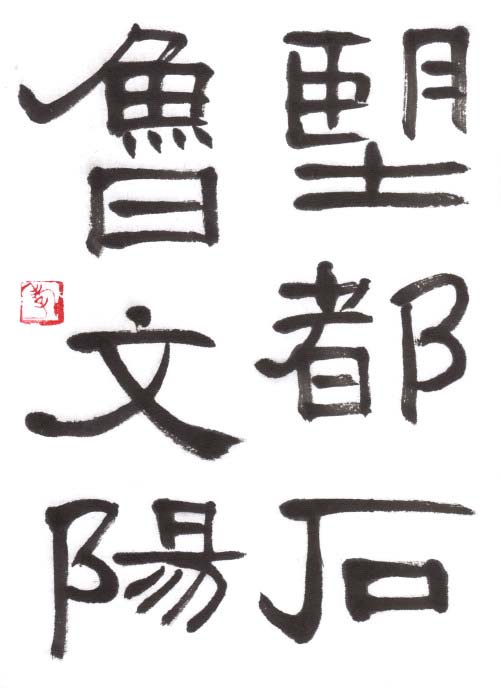 朢都石
魯文陽